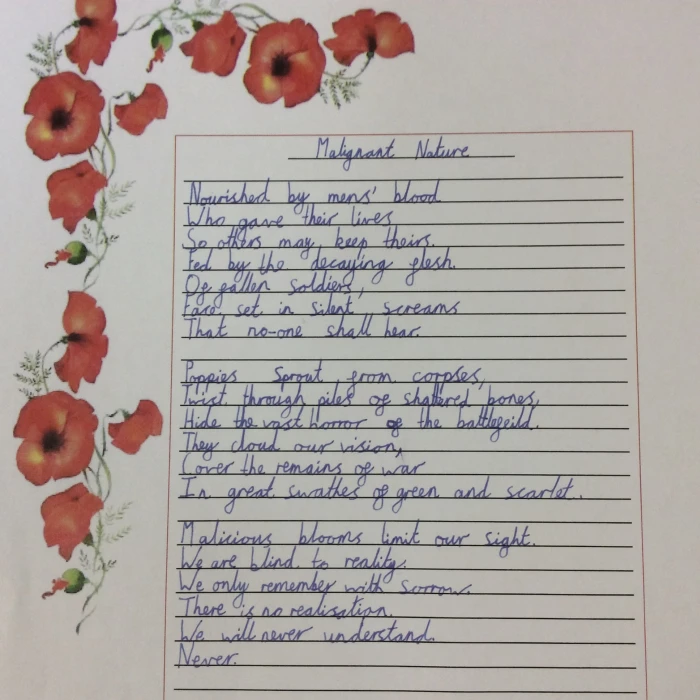 Malignant Nature
Nourished by mens' blood
Who gave their lives
So others may keep theirs.
Fed by the decaying flesh.
Of fallen soldiers,
Face set in silent screams
That no-one shall hear.
Poppies Sprout from corpses,
Twist through piles of shattered bones,
Hide the vast horror of the battlefeild.
They cloud our vision,
Cover the remains of war
In great swathes of green and scarlet.
Malicious blooms limit our sight.
We are blind to reality.
We only remember with sorrow.
There is no realisation.
We will never understand.
Never.